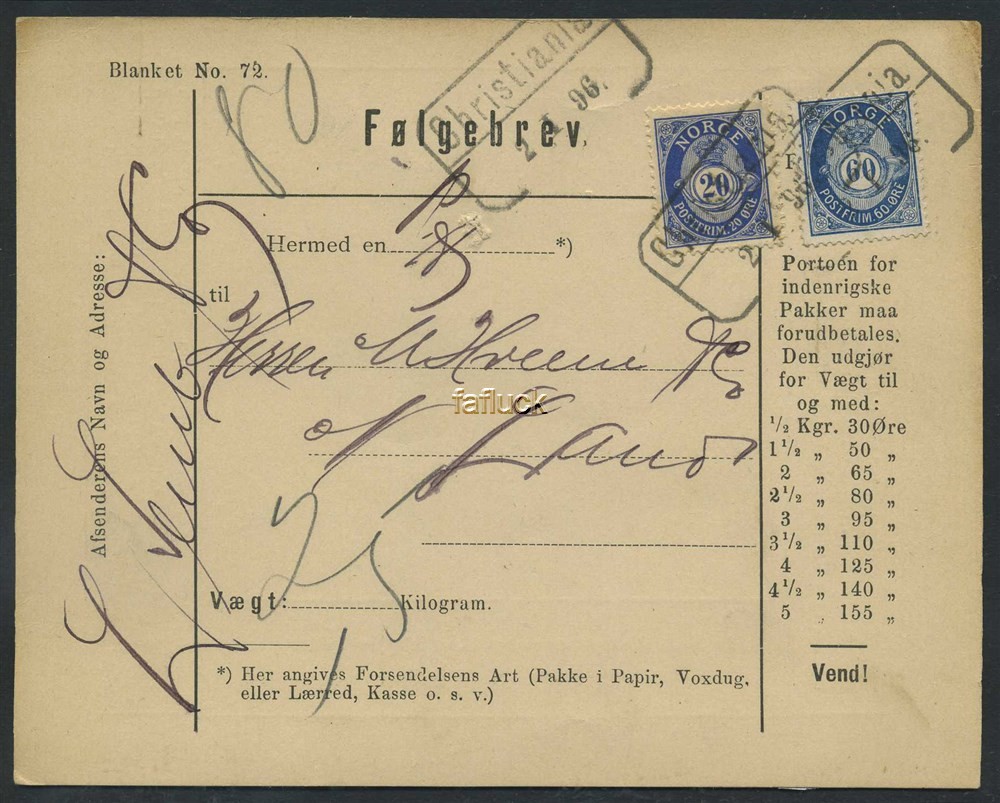 Blanket No. 72.
80
Følgebrev.
Christiania
2 1 96.
NORGE
20
POSTFRIM. 20 ØRE
NORGE
60
POSTFRIM. 60 ØRE
Afsenderens Navn og Adresse:
Hermed en *)
til
Herren
fafluck
Vægt: Kilogram.
*) Her angives Forsendelsens Art (Pakke i Papir, Voxdug,
eller Lærred, Kasse o. s. v.)
Portoen for
indenrigske
Pakker maa
forudbetales.
Den udgjør
for Vægt til
og med:
1/2 Kgr. 30 Øre
1 1/2 „ 50 „
2 „ 65 „
2 1/2 „ 80 „
3 „ 95 „
3 1/2 „ 110 „
4 „ 125 „
4 1/2 „ 140 „
5 „ 155 „
Vend!